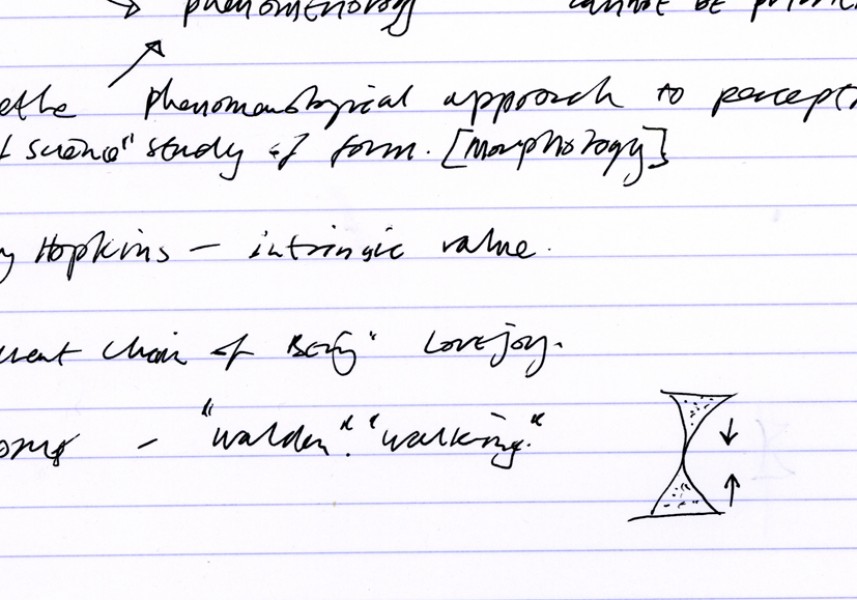 phenomenology cannot be
ethe phenomenological approach to percept
science" study of form. [Morphology]
y Hopkins – intrinsic value.
reat Chain of Being" Lovejoy.
– "Walden". "Walking."